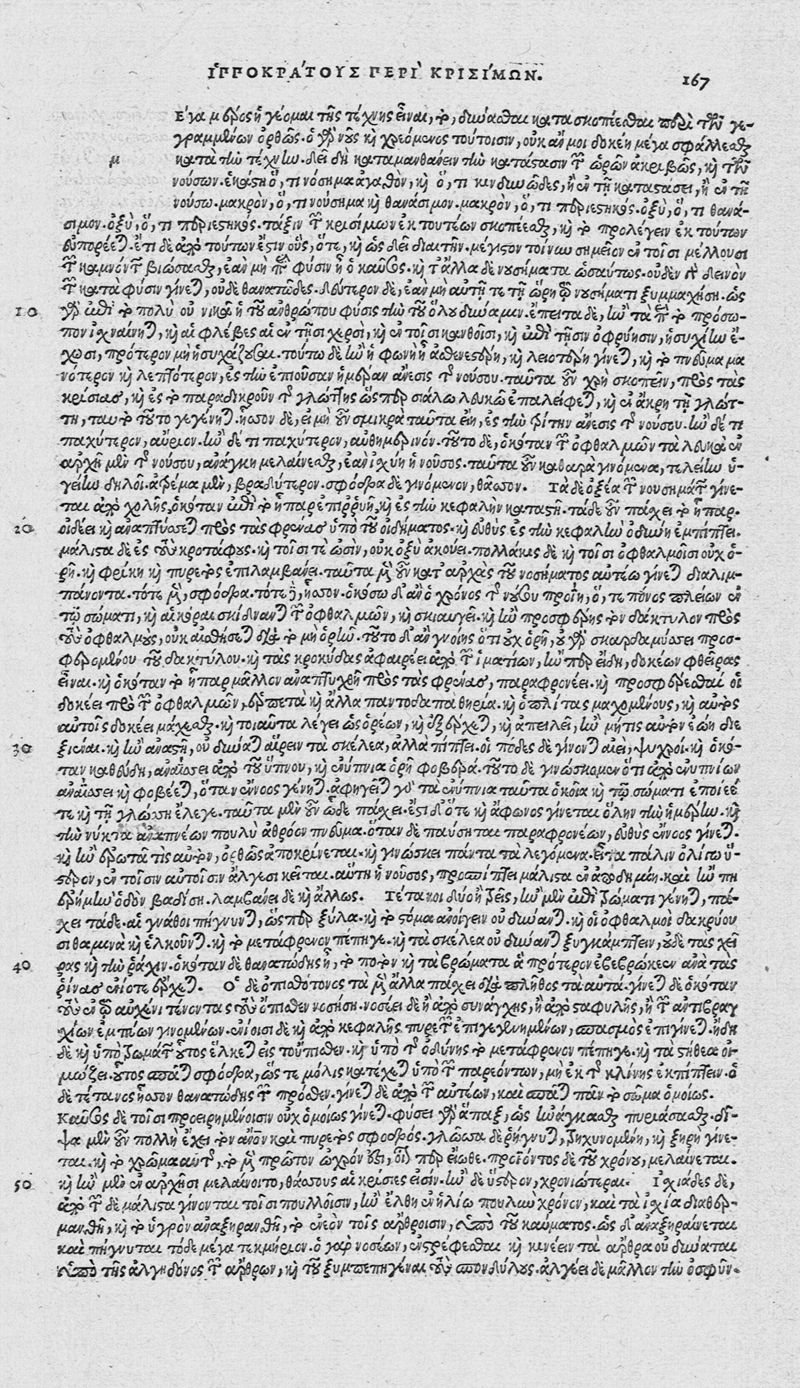 ΙΠΠΟΚΡΑΤΟΥΣ ΠΕΡΙ ΚΡΙΣΙΜΩΝ.
167
μέγα μέρος ἡγέομαι τῆς τέχνης εἶναι, τὸ, δύνασθαι κατασκοπέεσθαι περὶ τῶν γε-
γραμμένων ὀρθῶς. ὁ γὰρ γνοὺς καὶ χρεόμενος τούτοισιν, οὐκ ἄν μοι δοκέῃ μέγα σφάλλεσθαι
μ
κατὰ τὴν τέχνην. δεῖ δὴ καταμανθάνειν τὴν κατάστασιν τῶν ὡρῶν ἀκριβῶς, καὶ τῶν
νούσων. ἑκάστη ὅ, τι νόσημα ἀγαθὸν, καὶ ὅ, τι κινδυνῶδες, ἢ ἐν τῇ καταστάσει, ἢ ἐν τῇ
νούσῳ. μακρὸν, ὅ, τι νούσημα καὶ θανάσιμον. μακρὸν, ὅ, τι περιεστηκός. ὀξὺ, ὅ, τι θανά-
σιμον. ὀξὺ, ὅ, τι περιεστηκός. τάξιν τῶν κρισίμων ἐκ τουτέων σκοπέεσθαι, καὶ τὸ προλέγειν ἐκ τούτων
εὐπορέεται. ἔτι δὲ ἀπὸ τούτων ἐστὶν οὓς, ὅτε, καὶ ὡς δεῖ διαιτῆν. μέγιστον τοίνυν σημεῖον ἐν τοῖσι μέλλουσι
τῶν καμνόντων βιώσασθαι, ἐὰν μὴ παρὰ φύσιν ᾖ ὁ καῦσος. καὶ τἄλλα δὲ νουσήματα ὡσαύτως. οὐδὲν γὰρ δεινὸν
τῶν κατὰ φύσιν γίνεται, οὐδὲ θανατῶδες. δεύτερον δὲ, ἐὰν μὴ αὐτὴ τε τῇ ὥρῃ τῷ νουσήματι ξυμμαχήσῃ. ὡς
10
γὰρ ἐπὶ τὸ πολὺ οὐ νικᾷ ἡ τοῦ ἀνθρώπου φύσις τὴν τοῦ ὅλου δύναμιν. ἔπειτα δὲ, ἢν τὰ περὶ τὸ πρόσω-
πον ἰχναίνηται, καὶ αἱ φλέβες αἱ ἐν τῇσι χερσὶ, καὶ ἐν τοῖσι κανθοῖσι, καὶ ἐπὶ τῇσιν ὀφρύησιν, ἡσυχίην ἔ-
χωσι, πρότερον μὴ ἡσυχάζουσαι. τοῦτο δὲ ἢν ἡ φωνὴ ἀσθενεστέρη, καὶ λειοτέρη γίνεται, καὶ τὸ πνεῦμα μα-
νότερον καὶ λεπτότερον, ἐς τὴν ἐπιοῦσαν ἡμέραν ἄνεσις τοῦ νούσου. ταῦτα οὖν χρὴ σκοπεῖν, πρὸς τὰς
κρίσιας, καὶ ἐς τὸ παραδικροῦν τοῦ γλώττης ὥσπερ σιάλῳ λευκῷ ἐπαλείφεται, καὶ ἐν ἄκρῃ τῇ γλώτ-
τῃ, ταυτὸ τοῦτο γεγένηται. ἧσσον δὲ, εἰ μὲν οὖν σμικρὰ ταῦτα εἴη, ἐς τὴν τρίτην ἄνεσις τοῦ νούσου. ἢν δέ τι
παχύτερον, αὔριον. ἢν δέ τι παχύτερον, αὐθημερινόν. τοῦτο δὲ, ὁκόταν τῶν ὀφθαλμῶν τὰ λευκὰ ἐν
ἀρχῇ μὲν τοῦ νούσου, ἀνάγκη μελαίνεσθαι, ἐὰν ἰσχύῃ ἡ νοῦσος. ταῦτα οὖν καθαρὰ γινόμενα, τελείην ὑ-
γείην δηλοῖ. ἀτρέμα μὲν, βραδύτερον. σφόδρα δὲ γινόμενον, θᾶσσον. Τὰ δὲ ὀξέα τῶν νουσημάτων γίνε-
ται ἀπὸ χολῆς, ὁκόταν ἐπὶ τὸ ἧπαρ ἐπιῤῥυῇ, καὶ ἐς τὴν κεφαλὴν καταστῇ. τάδε οὖν πάσχει τὸ ἧπαρ.
20
οἰδέει καὶ ἀναπτύσσεται πρὸς τὰς φρένας ὑπὸ τοῦ οἰδήματος. καὶ εὐθὺς ἐς τὴν κεφαλὴν ὀδύνη ἐμπίπτει.
μάλιστα δὲ ἐς τοὺς κροτάφους. καὶ τοῖσί τε ὠσὶν, οὐκ ὀξὺ ἀκούει. πολλάκις δὲ καὶ τοῖσι ὀφθαλμοῖσι οὐχ ὁ-
ρῇ. καὶ φρίκη καὶ πυρετὸς ἐπιλαμβάνει. ταῦτα μὲν οὖν κατ' ἀρχὰς τοῦ νοσήματος αὐτέῳ γίνεται διαλιμ-
πάνοντα. τότε μὲν, σφόδρα. τότε δὲ, ἧσσον. ὁκόσῳ δ' ἂν ὁ χρόνος τοῦ νούσου προΐῃ, ὅ, τε πόνος πλείων ἐν
τῷ σώματι, καὶ αἱ κόραι σκίδνανται τῶν ὀφθαλμῶν, καὶ σκιαυγεῖ. καὶ ἢν προσφέρῃς τὸν δάκτυλον πρὸς
τοὺς ὀφθαλμοὺς, οὐκ αἰσθήσεται διὰ τὸ μὴ ὁρῆν. τοῦτο δ' ἂν γνοίης ὅτι οὐχ ὁρῇ, οὐ γὰρ σκαρδαμύσσει προσ-
φερομένου τοῦ δακτύλου. καὶ τὰς κροκύδας ἀφαιρέει ἀπὸ τῶν ἱματίων, ἤν περ εἴδῃ, δοκέων φθεῖρας
εἶναι. καὶ ὁκόταν τὸ ἧπαρ μᾶλλον ἀναπτυχθῇ πρὸς τὰς φρένας, παραφρονέει. καὶ προσφέρεσθαί οἱ
δοκέει πρὸ τῶν ὀφθαλμῶν, ἑρπετὰ καὶ ἄλλα παντοδαπὰ θηρία. καὶ ὁπλῖται μαχόμενοι, καὶ αὐτὸς
αὐτοῖς δοκέει μάχεσθαι. καὶ τοιαῦτα λέγει ὡς ὁρέων, καὶ ἐξέρχεται, καὶ ἀπειλεῖ, ἢν μή τις αὐτὸν ἐώῃ διε-
ξιέναι. καὶ ἢν ἀναστῇ, οὐ δύναται αἴρειν τὰ σκέλεα, ἀλλὰ πίπτει. οἱ πόδες δὲ γίνονται αἰεὶ ψυχροί. καὶ ὁκό-
30
ταν καθεύδῃ, ἀναΐσσει ἀπὸ τοῦ ὕπνου, καὶ ἐνύπνια ὁρῇ φοβερά. τοῦτο δὲ γινώσκομεν ὅτι ἀπὸ ἐνυπνίων
ἀναΐσσει καὶ φοβέεται, ὅταν ἔννοος γένηται. ἀφηγεῖται γὰρ τὰ ἐνύπνια ταῦτα ὁκοῖα καὶ τῷ σώματι ἐποίεε
τε καὶ τῇ γλώσσῃ ἔλεγε. ταῦτα μὲν οὖν ὧδε πάσχει. ἔστι δ' ὅτε καὶ ἄφωνος γίνεται ὅλην τὴν ἡμέρην. καὶ
τὴν νύκτα ἀναπνέων πουλὺ ἀθρόον πνεῦμα. ὅταν δὲ παύσηται παραφρονέων, εὐθὺς ἔννοος γίνεται.
καὶ ἢν ἐρωτᾷ τις αὐτὸν, ὀρθῶς ἀποκρίνεται. καὶ γινώσκει πάντα τὰ λεγόμενα. εἶτα πάλιν ὀλίγῳ ὕ-
στερον, ἐν τοῖσιν αὐτοῖσιν ἄλγεσι κεῖται. αὕτη ἡ νοῦσος, προσπίπτει μάλιστα ἐν ἀποδημίῃ. καὶ ἤν πη
ἐρήμην ὁδὸν βαδίσῃ. λαμβάνει δὲ καὶ ἄλλως. Τέτανοι δύο ἢ τρεῖς, ἢν μὲν ἐπὶ τρώματι γένηται, πά-
σχει τάδε. αἱ γνάθοι πήγνυνται, ὥσπερ ξύλα. καὶ τὸ στόμα ἀνοίγειν οὐ δύνανται. καὶ οἱ ὀφθαλμοὶ δακρύου-
σι θαμινὰ καὶ ἕλκονται. καὶ τὸ μετάφρενον πέπηγε. καὶ τὰ σκέλεα οὐ δύναται ξυγκάμπτειν, οὐδὲ τὰς χεῖ-
ρας καὶ τὴν ῥάχιν. ὁκόταν δὲ θανατώδης ᾖ, τὸ ποτὸν καὶ τὰ βρώματα ἃ πρότερον ἐβεβρώκει ἀνὰ τὰς
40
ῥῖνας ἐνίοτε ἔρχεται. Ὁ δὲ ὀπισθότονος τὰ μὲν ἄλλα πάσχει διὰ πλῆθος τὰ αὐτά. γίνεται δὲ ὁκόταν
τοὺς ἐν τῷ αὐχένι τένοντας τοὺς ὄπισθεν νοσήσῃ. νοσέει δὲ ἢ ἀπὸ συνάγχης, ἢ ἀπὸ σταφυλῆς, ἢ τῶν ἀντιβραγ-
χίων ἐμπύων γινομένων. ἐνίοισι δὲ καὶ ἀπὸ κεφαλῆς πυρετῶν ἐπιγενομένων, σπασμὸς ἐπιγίνεται. ἤδη
δὲ καὶ ὑπὸ τρωμάτων οὗτος ἕλκεται εἰς τοὔπισθεν. καὶ ὑπὸ τοῦ ὀδύνης τὸ μετάφρενον πέπηγε. καὶ τὰ στήθεα οἰ-
μώζει. οὗτος σπᾶται σφόδρα, ὥς τε μόλις κατέχεται ὑπὸ τῶν παρεόντων, μὴ ἐκ τοῦ κλίνης ἐκπίπτειν. ὁ
δὲ τέτανος ἧσσον θανατώδης τῶν πρόσθεν. γίνεται δὲ ἀπὸ τῶν αὐτέων, καὶ σπᾶται πᾶν τὸ σῶμα ὁμοίως.
Καῦσος δὲ τοῖσι προειρημένοισιν οὐχ ὁμοίως γίνεται. φύσει γὰρ ἅπαξ, ὡς ἢν ἄγκασθαι πυριάσασθαι. δί-
ψα μὲν οὖν πολλὴ ἔχει τὸν ἄνον καὶ πυρετὸς σφοδρός. γλῶσσα δὲ ῥήγνυται, τρηχυνομένη, καὶ ξηρὴ γίνε-
ται. καὶ τὸ χρῶμα αὐτοῦ, τὸ μὲν πρῶτον ὠχρόν ἐστι, οἷόν περ εἴωθε. προϊόντος δὲ τοῦ χρόνου, μελαίνεται.
καὶ ἢν μὲν ἐν ἀρχῇσι μελαίνοιτο, θάσσους αἱ κρίσιές εἰσιν. ἢν δὲ ὕστερον, χρονιώτεραι. Ἰσχιάδες δὲ,
50
ἀπὸ τῶν δὲ μάλιστα γίνονται τοῖσι πουλλοῖσιν, ἢν ἔλθῃ ἐν ἡλίῳ πουλὺν χρόνον, καὶ τὰ ἰσχία διαθερ-
μανθῇ, καὶ τὸ ὑγρὸν ἀναξηρανθῇ, τὸ ἐνεὸν τοῖς ἄρθροισιν, ὑπὸ τοῦ καύματος. ὡς δ' ἀναξηραίνεται
καὶ πήγνυται τόδε μέγα τεκμήριον. ὁ γὰρ νοσέων, ἐνστρέφεσθαι καὶ κινέειν τὰ ἄρθρα οὐ δύναται
ὑπὸ τῆς ἀλγηδόνος τῶν ἄρθρων, καὶ τοῦ ξυμπεπηγέναι τοὺς σπονδύλους. ἀλγέει δὲ μᾶλλον τὴν ὀσφῦν.